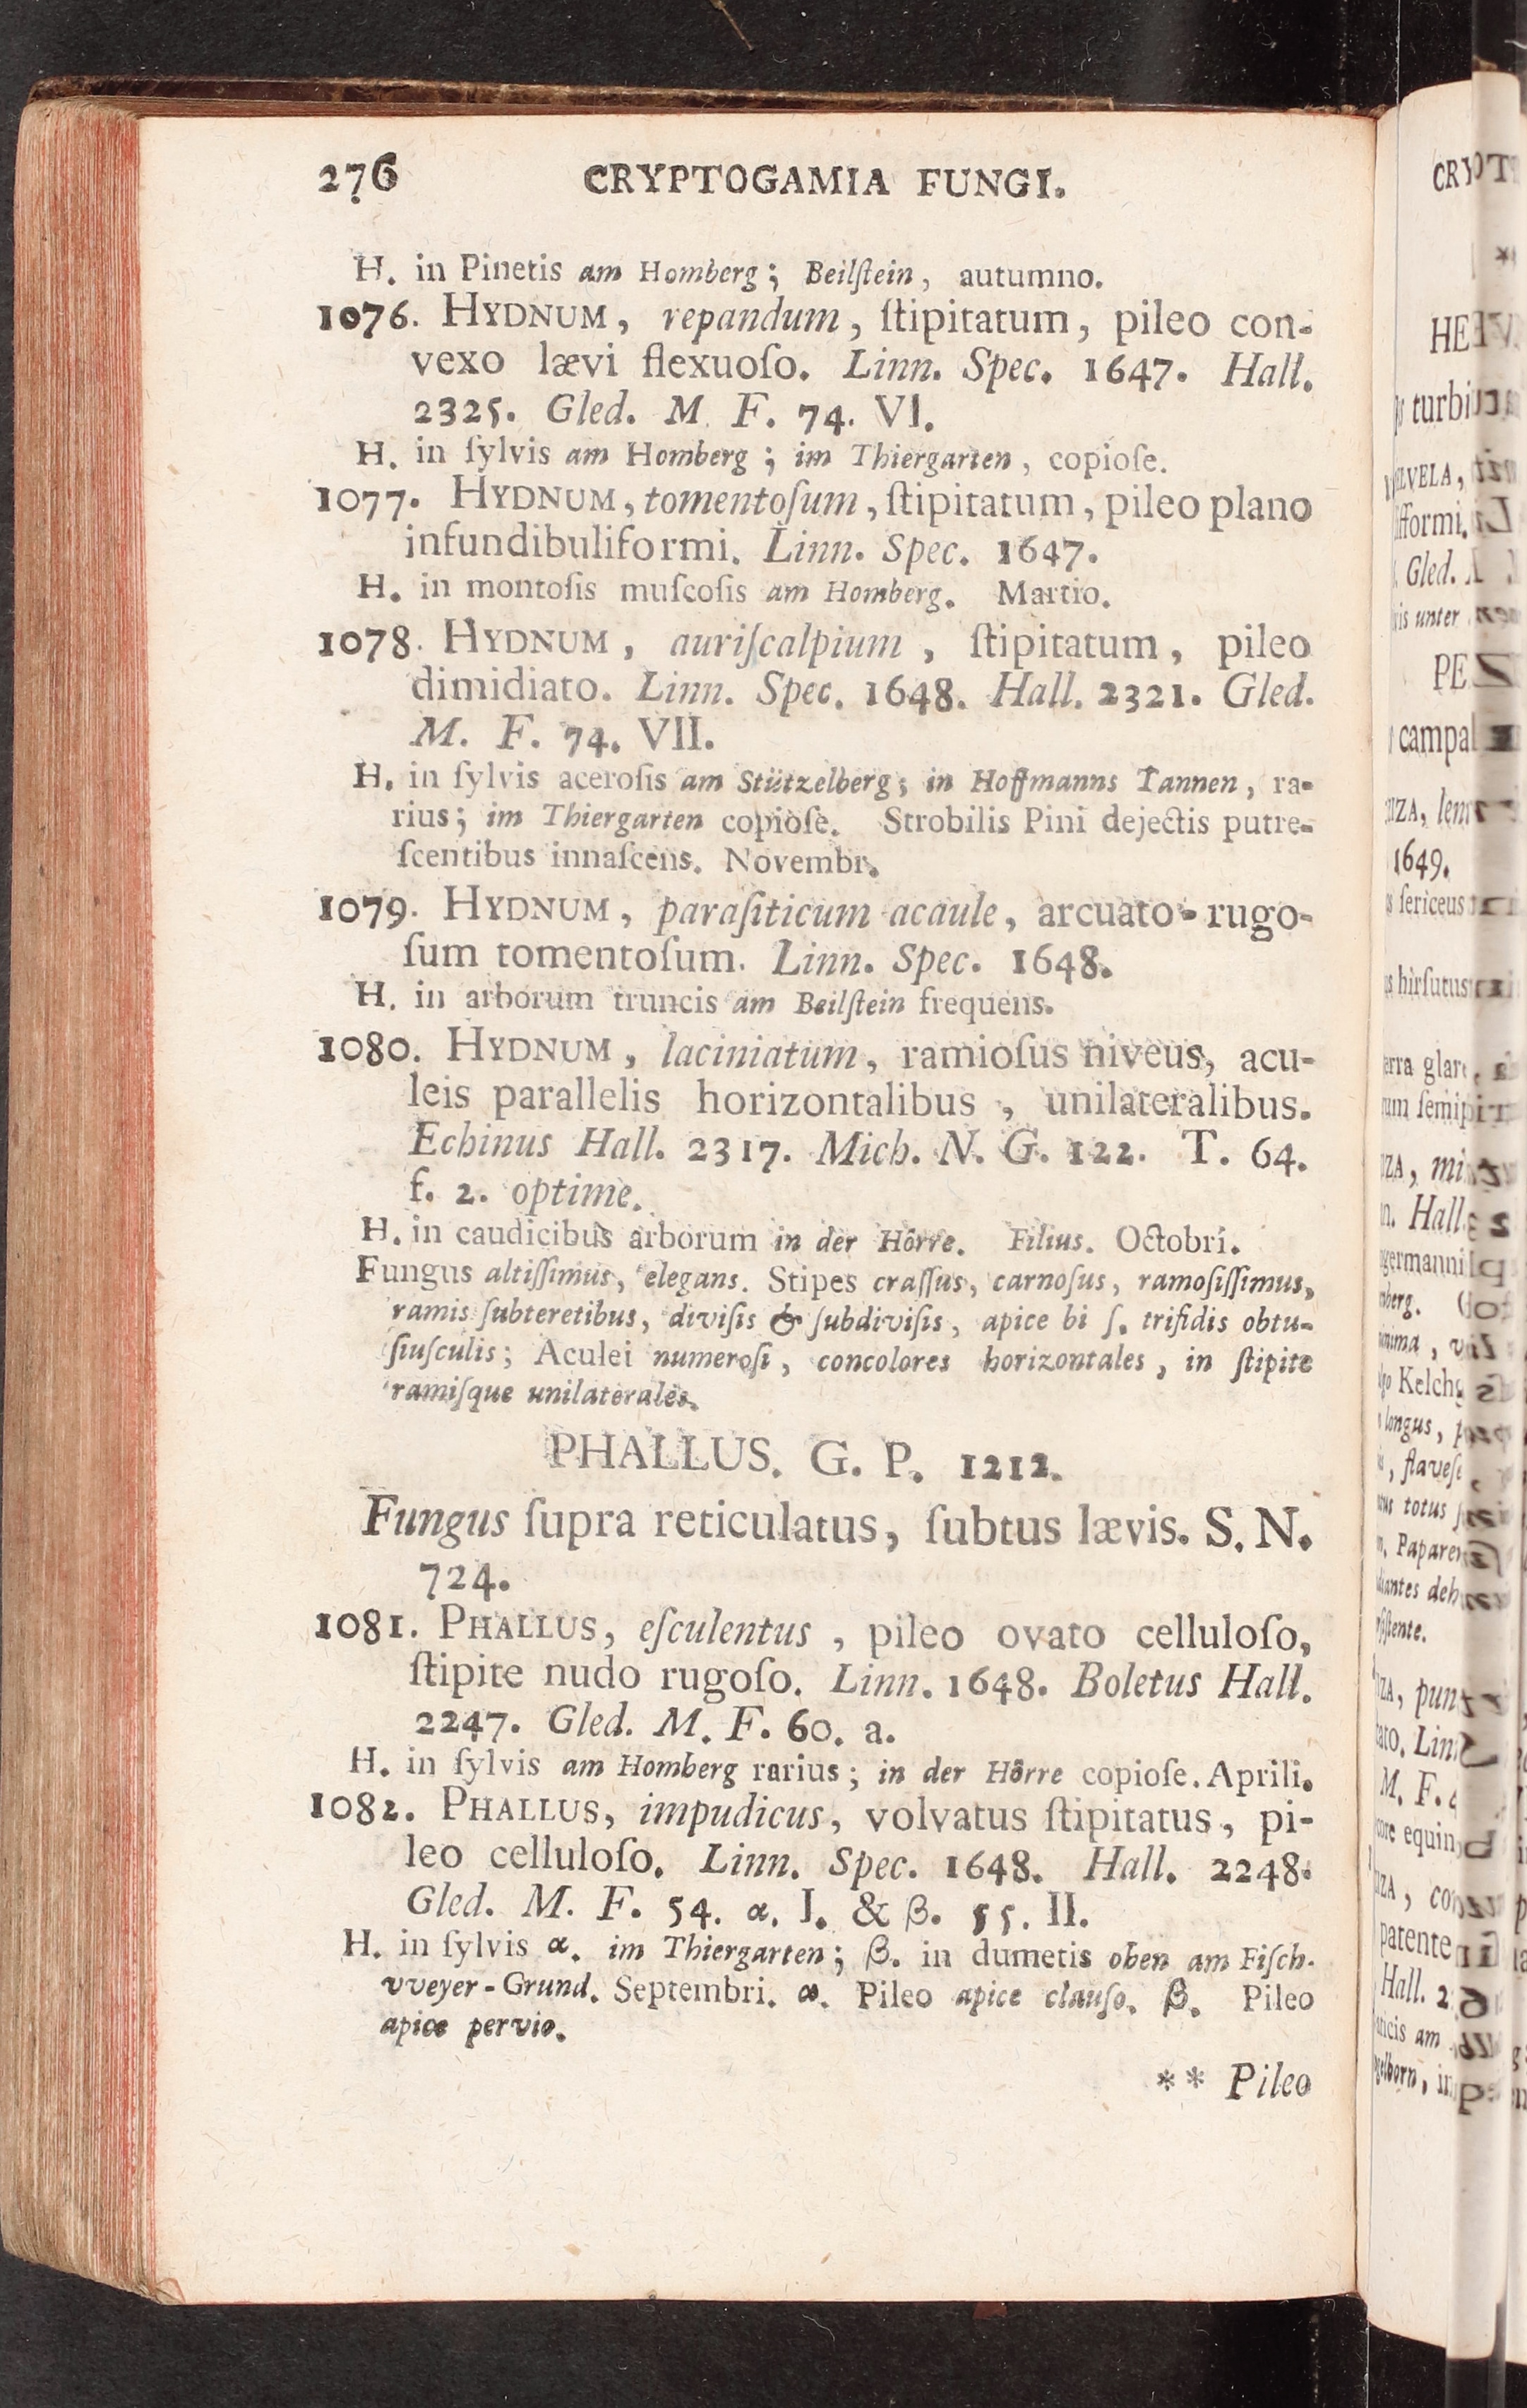 276 CRYPTOGAMIA FUNGI.
H. in Pinetis am Homberg; Beilſtein, autumno.
1076. HYDNUM, repandum, ſtipitatum, pileo con-
vexo lævi flexuoſo. Linn. Spec. 1647. Hall.
2325. Gled. M. F. 74. VI.
H. in ſylvis am Homberg; im Thiergarten, copioſe.
1077. HYDNUM, tomentoſum, ſtipitatum, pileo plano
infundibuliformi. Linn. Spec. 1647.
H. in montoſis muſcoſis am Homberg. Martio.
1078. HYDNUM, auriſcalpium, ſtipitatum, pileo
dimidiato. Linn. Spec. 1648. Hall. 2321. Gled.
M. F. 74. VII.
H. in ſylvis aceroſis am Stützelberg; in Hoffmanns Tannen, ra-
rius; im Thiergarten copioſe. Strobilis Pini dejectis putre-
ſcentibus innaſcens. Novembr.
1079. HYDNUM, paraſiticum acaule, arcuato-rugo-
ſum tomentoſum. Linn. Spec. 1648.
H. in arborum truncis am Beilſtein frequens.
1080. HYDNUM, laciniatum, ramioſus niveus, acu-
leis parallelis horizontalibus, unilateralibus.
Echinus Hall. 2317. Mich. N. G. 122. T. 64.
f. 2. optime.
H. in caudicibus arborum in der Hörre. Filius. Octobri.
Fungus altiſſimus, elegans. Stipes craſſus, carnoſus, ramoſiſſimus,
ramis ſubteretibus, diviſis & ſubdiviſis, apice bi ſ. trifidis obtu-
ſiuſculis; Aculei numeroſi, concolores horizontales, in ſtipite
ramiſque unilaterales.
PHALLUS. G. P. 1212.
Fungus ſupra reticulatus, ſubtus lævis. S. N.
724.
1081. PHALLUS, eſculentus, pileo ovato celluloſo,
ſtipite nudo rugoſo. Linn. 1648. Boletus Hall.
2247. Gled. M. F. 60. a.
H. in ſylvis am Homberg rarius; in der Hörre copioſe. Aprili.
1082. PHALLUS, impudicus, volvatus ſtipitatus, pi-
leo celluloſo. Linn. Spec. 1648. Hall. 2248.
Gled. M. F. 54. α. I. & β. 55. II.
H. in ſylvis α. im Thiergarten; β. in dumetis oben am Fiſch-
vveyer-Grund. Septembri. α. Pileo apice clauſo. β. Pileo
apice pervio.
** Pileo